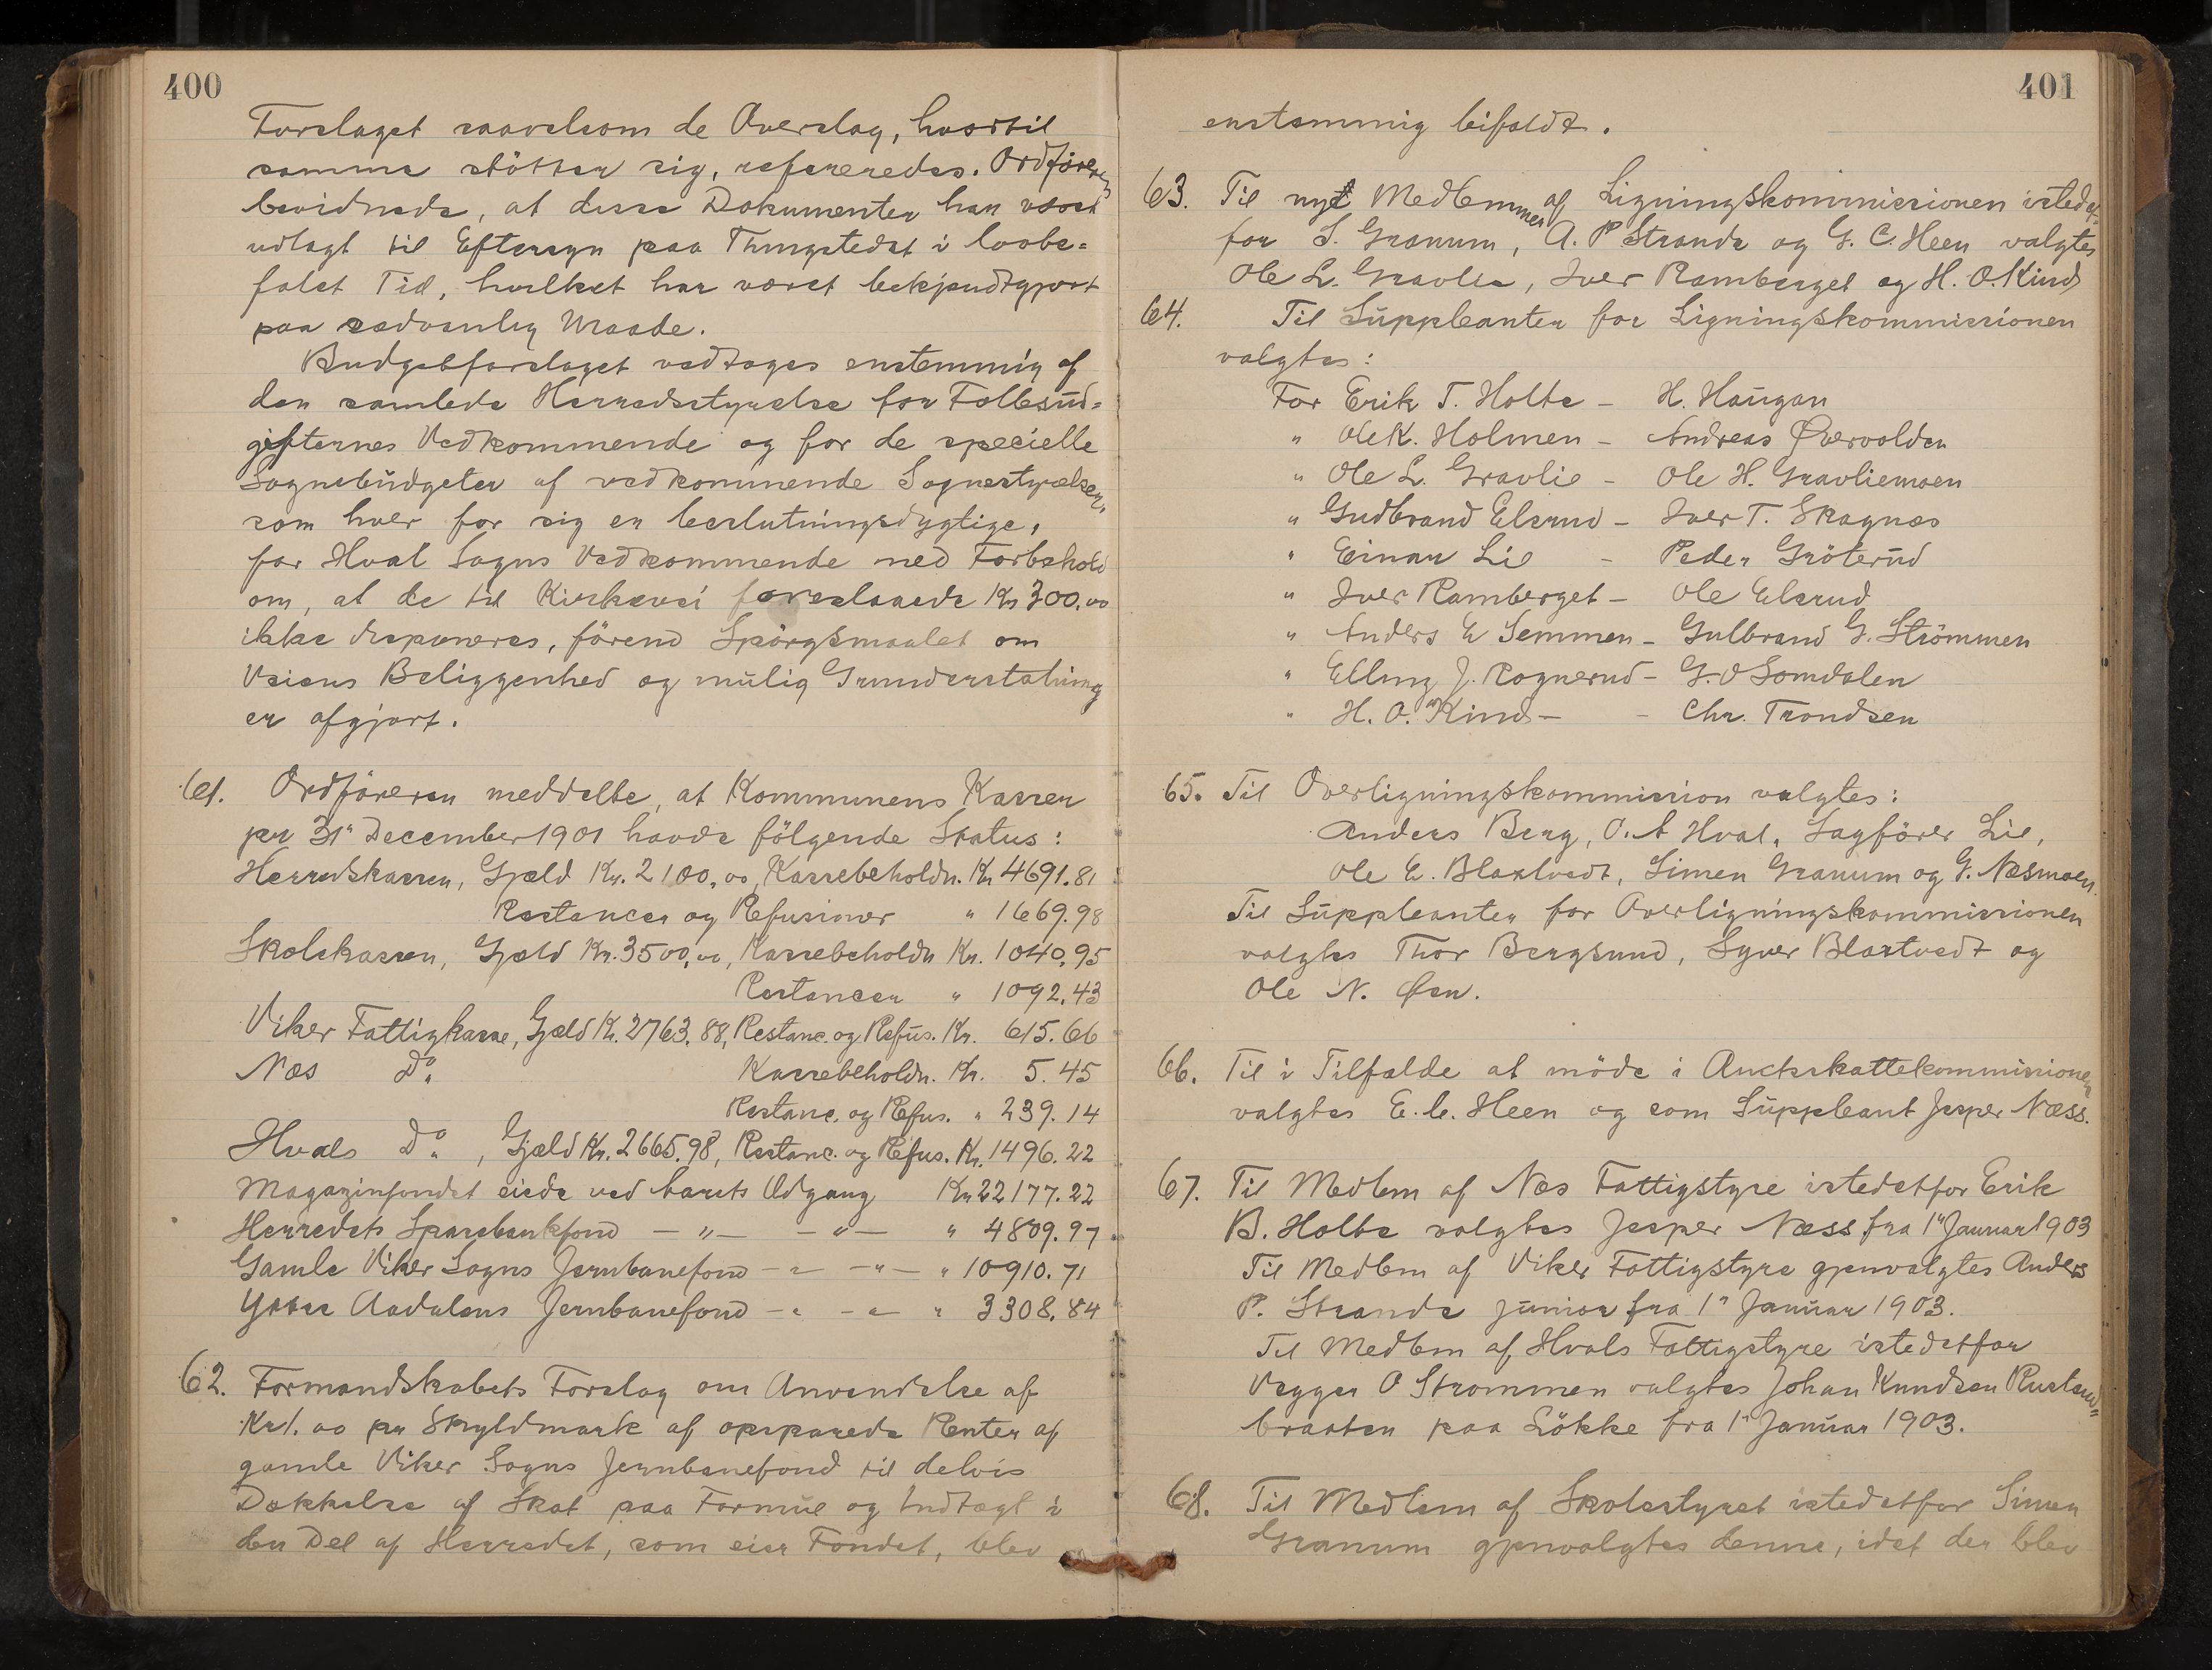 400
Forslaget saavelsom de Overslag, hvortil
samme støtter sig, refereredes. Ordføreren
bevidnede, at disse Dokumenter har været
udlagt til Eftersyn paa Thingstedet i lovbe=
falet Tid, hvilket har været bekjendtgjort
paa sædvanlig Maade.
Budgetforslaget vedtages enstemmig af
den samlede Herredsstyrelse for Fællesud=
gifternes Vedkommende og for de specielle
Sognebudgeter af vedkommende Sognestyrelser,
som hver for sig er beslutningsdygtige,
for Hval Sogns Vedkommende med Forbehold
om, at de til Kirkevei foreslaaede Kr 300.00
ikke disponeres, førend Spørgsmaalet om
Veiens Beliggenhed og mulig Grunderstatning
er afgjort.
61. Ordføreren meddelte, at Kommunens Kasser
pr 31" December 1901 havde følgende Status:
Herredskassen, Gjæld Kr. 2100,00, Kassebeholdn. Kr 4691.81
Restancer og Refusioner " 1669.98
Skolekassen, Gjæld Kr. 3500,00, Kassebeholdn Kr. 1040.95
Restancer " 1092.43
Viker Fattigkasse, Gjæld Kr. 2763.88, Restanc. og Refus. Kr. 615.66
Næs Do Kassebeholdn. Kr. 5.45
Restanc. og Refus. " 239.14
Hvals Do, Gjæld Kr. 2665.98, Restanc. og Refus. Kr. 1496.22
Magazinfondet eiede ved Aarets Udgang Kr 22177.22
Herredets Sparebankfond — " — — " — " 4809.97
Gamle Viker Sogns Jernbanefond — " — " — " 10910.71
Ytre Aadalens Jernbanefond — " — " — " 3308.84
62. Formandskabets Forslag om Anvendelse af
Kr 1.00 pr Skyldmark af opsparede Renter af
gamle Viker Sogns Jernbanefond til delvis
Dækkelse af Skat paa Formue og Indtægt i
den Del af Herredet, som eier Fondet, blev
401
enstemmig bifaldt.
63. Til nyt Medlemmer af Ligningskommissionen istedet=
for S. Granum, A. P Strande og G. C. Heen valgtes
Ole L. Gravlie, Iver Ramberget og H. O. Kind
64. Til Suppleanter for Ligningskommissionen
valgtes:
For Erik T. Holte – H. Haugan
" Ole K. Holmen – Andreas Øvervolden
" Ole L. Gravlie – Ole H. Gravliemoen
" Gudbrand Elsrud – Iver T. Skagnæs
" Einar Lie – Peder Grøterud
" Iver Ramberget – Ole Elsrud
" Anders E Semmen – Gulbrand G. Strømmen
" Elling J. Rognerud – G. O Somdalen
" H. O. Kind – – Chr. Trondsen
65. Til Overligningskommission valgtes:
Anders Berg, O. A Hval, Sagfører Lie,
Ole E. Blaxtvedt, Simen Granum og G. Næsmoen.
Til Suppleanter for Overligningskommissionen
valgtes Thor Bergsund, Syver Blaxtvedt og
Ole N. Øen.
66. Til i Tilfælde at møde i Amtsskattekommissionen
valgtes E. C. Heen og som Suppleant Jesper Næss.
67. Til Medlem af Næs Fattigstyre istedetfor Erik
B. Holte valgtes Jesper Næss fra 1" Januar 1903
Til Medlem af Viker Fattigstyre gjenvalgtes Anders
P. Strande junior fra 1" Januar 1903.
Til Medlem af Hvals Fattigstyre istedetfor
O Strømmen valgtes Johan Knudsen Rustand=
braaten paa Løkke fra 1" Januar 1903.
68. Til Medlem af Skolestyret istedetfor Simen
Granum gjenvalgtes denne, idet der blev